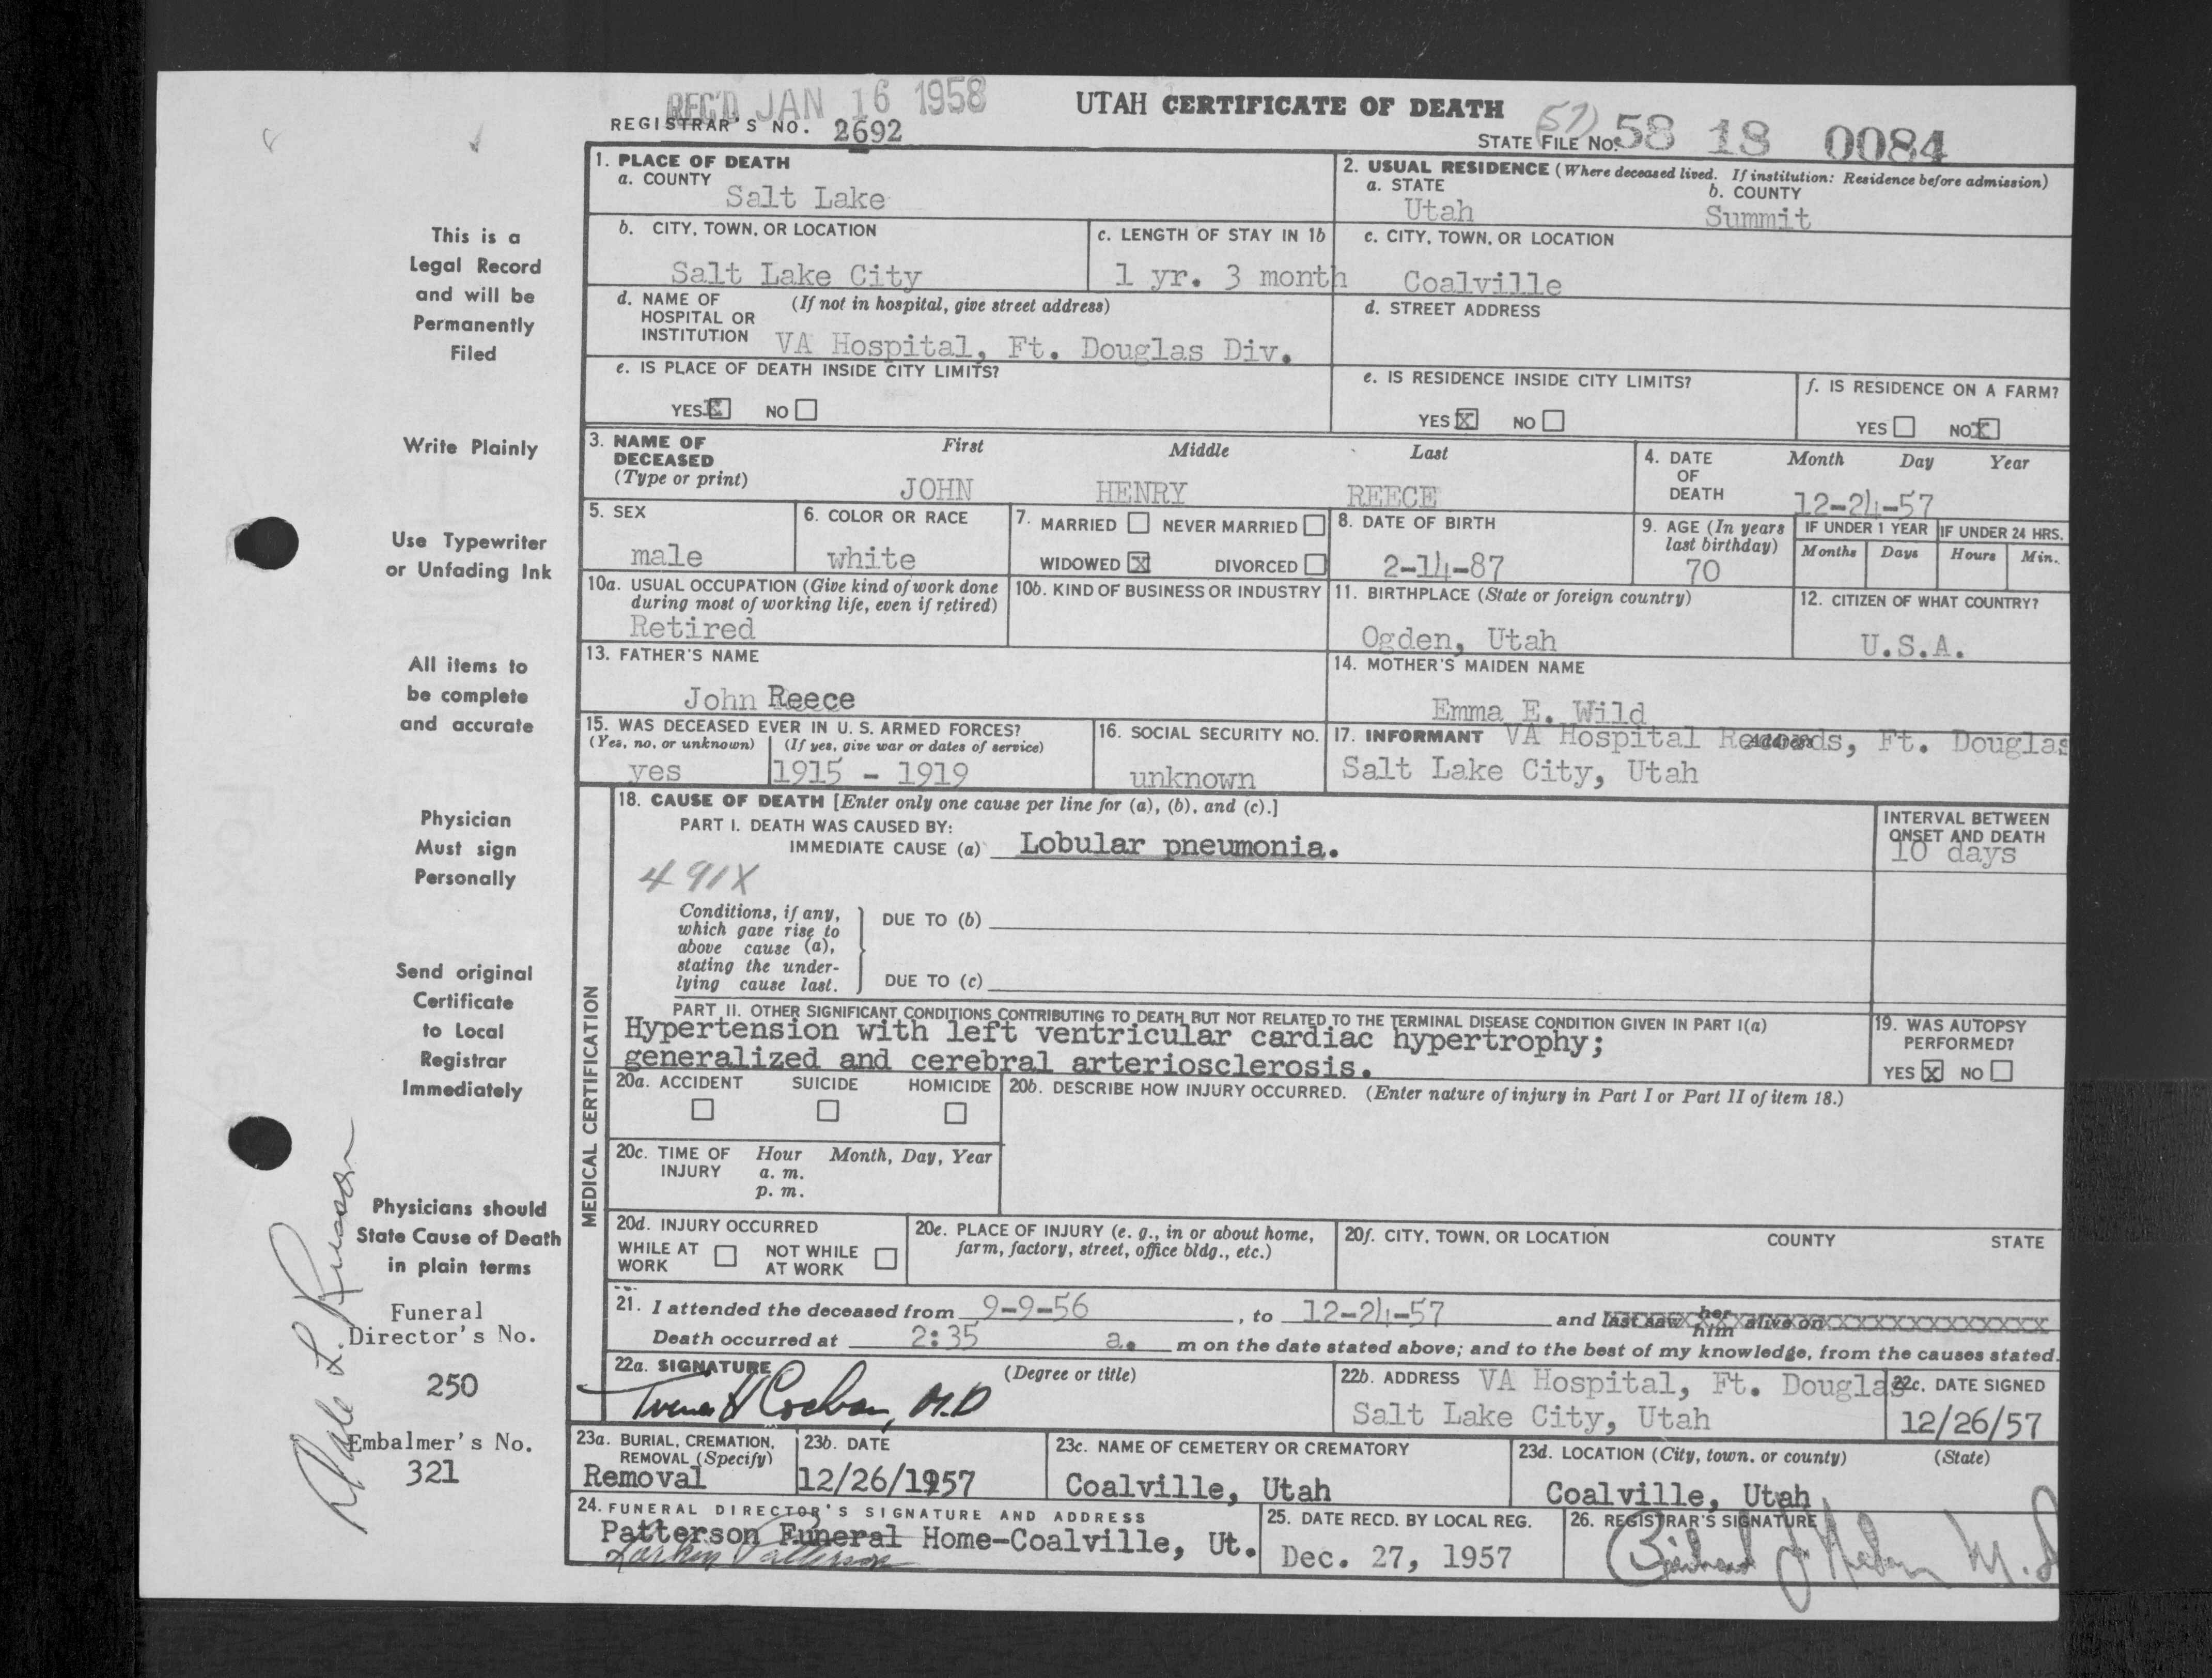 REC'D JAN 16 1958
UTAH CERTIFICATE OF DEATH
REGISTRAR'S NO. 2692
(57)
STATE FILE NO. 58 18 0084
This is a
Legal Record
and will be
Permanently
Filed
Write Plainly
Use Typewriter
or Unfading Ink
All items to
be complete
and accurate
Physician
Must sign
Personally
Send original
Certificate
to Local
Registrar
Immediately
Physicians should
State Cause of Death
in plain terms
Funeral
Director's No.
250
Embalmer's No.
321
1. PLACE OF DEATH
a. COUNTY
Salt Lake
2. USUAL RESIDENCE (Where deceased lived. If institution: Residence before admission)
a. STATE b. COUNTY
Utah Summit
b. CITY, TOWN, OR LOCATION
Salt Lake City
c. LENGTH OF STAY IN 1b
1 yr. 3 month
c. CITY, TOWN, OR LOCATION
Coalville
d. NAME OF (If not in hospital, give street address)
HOSPITAL OR
INSTITUTION VA Hospital, Ft. Douglas Div.
d. STREET ADDRESS
e. IS PLACE OF DEATH INSIDE CITY LIMITS?
YES X NO
e. IS RESIDENCE INSIDE CITY LIMITS?
YES X NO
f. IS RESIDENCE ON A FARM?
YES NO X
3. NAME OF First Middle Last
DECEASED
(Type or print)
JOHN HENRY REECE
4. DATE Month Day Year
OF
DEATH 12-24-57
5. SEX
male
6. COLOR OR RACE
white
7. MARRIED NEVER MARRIED
WIDOWED X DIVORCED
8. DATE OF BIRTH
2-14-87
9. AGE (In years
last birthday)
70
IF UNDER 1 YEAR IF UNDER 24 HRS.
Months Days Hours Min.
10a. USUAL OCCUPATION (Give kind of work done
during most of working life, even if retired)
Retired
10b. KIND OF BUSINESS OR INDUSTRY
11. BIRTHPLACE (State or foreign country)
Ogden, Utah
12. CITIZEN OF WHAT COUNTRY?
U.S.A.
13. FATHER'S NAME
John Reece
14. MOTHER'S MAIDEN NAME
Emma E. Wild
15. WAS DECEASED EVER IN U. S. ARMED FORCES?
(Yes, no, or unknown) (If yes, give war or dates of service)
yes 1915 - 1919
16. SOCIAL SECURITY NO.
unknown
17. INFORMANT VA Hospital Records, Ft. Douglas
Address
Salt Lake City, Utah
MEDICAL CERTIFICATION
18. CAUSE OF DEATH [Enter only one cause per line for (a), (b), and (c).]
PART I. DEATH WAS CAUSED BY:
IMMEDIATE CAUSE (a) Lobular pneumonia.
INTERVAL BETWEEN
ONSET AND DEATH
10 days
491X
Conditions, if any,
which gave rise to
above cause (a),
stating the under-
lying cause last.
DUE TO (b)
DUE TO (c)
PART II. OTHER SIGNIFICANT CONDITIONS CONTRIBUTING TO DEATH BUT NOT RELATED TO THE TERMINAL DISEASE CONDITION GIVEN IN PART I(a)
Hypertension with left ventricular cardiac hypertrophy;
generalized and cerebral arteriosclerosis.
19. WAS AUTOPSY
PERFORMED?
YES X NO
20a. ACCIDENT SUICIDE HOMICIDE
20b. DESCRIBE HOW INJURY OCCURRED. (Enter nature of injury in Part I or Part II of item 18.)
20c. TIME OF Hour Month, Day, Year
INJURY a. m.
p. m.
20d. INJURY OCCURRED
WHILE AT WORK NOT WHILE AT WORK
20e. PLACE OF INJURY (e. g., in or about home,
farm, factory, street, office bldg., etc.)
20f. CITY, TOWN, OR LOCATION COUNTY STATE
21. I attended the deceased from 9-9-56, to 12-24-57 and last saw her him alive on
Death occurred at 2:35 a. m on the date stated above; and to the best of my knowledge, from the causes stated.
22a. SIGNATURE (Degree or title)
M.D
22b. ADDRESS VA Hospital, Ft. Douglas
Salt Lake City, Utah
22c. DATE SIGNED
12/26/57
23a. BURIAL, CREMATION,
REMOVAL (Specify)
Removal
23b. DATE
12/26/1957
23c. NAME OF CEMETERY OR CREMATORY
Coalville, Utah
23d. LOCATION (City, town, or county) (State)
Coalville, Utah
24. FUNERAL DIRECTOR'S SIGNATURE AND ADDRESS
Patterson Funeral Home-Coalville, Ut.
Larkin Patterson
25. DATE RECD. BY LOCAL REG.
Dec. 27, 1957
26. REGISTRAR'S SIGNATURE
M.D